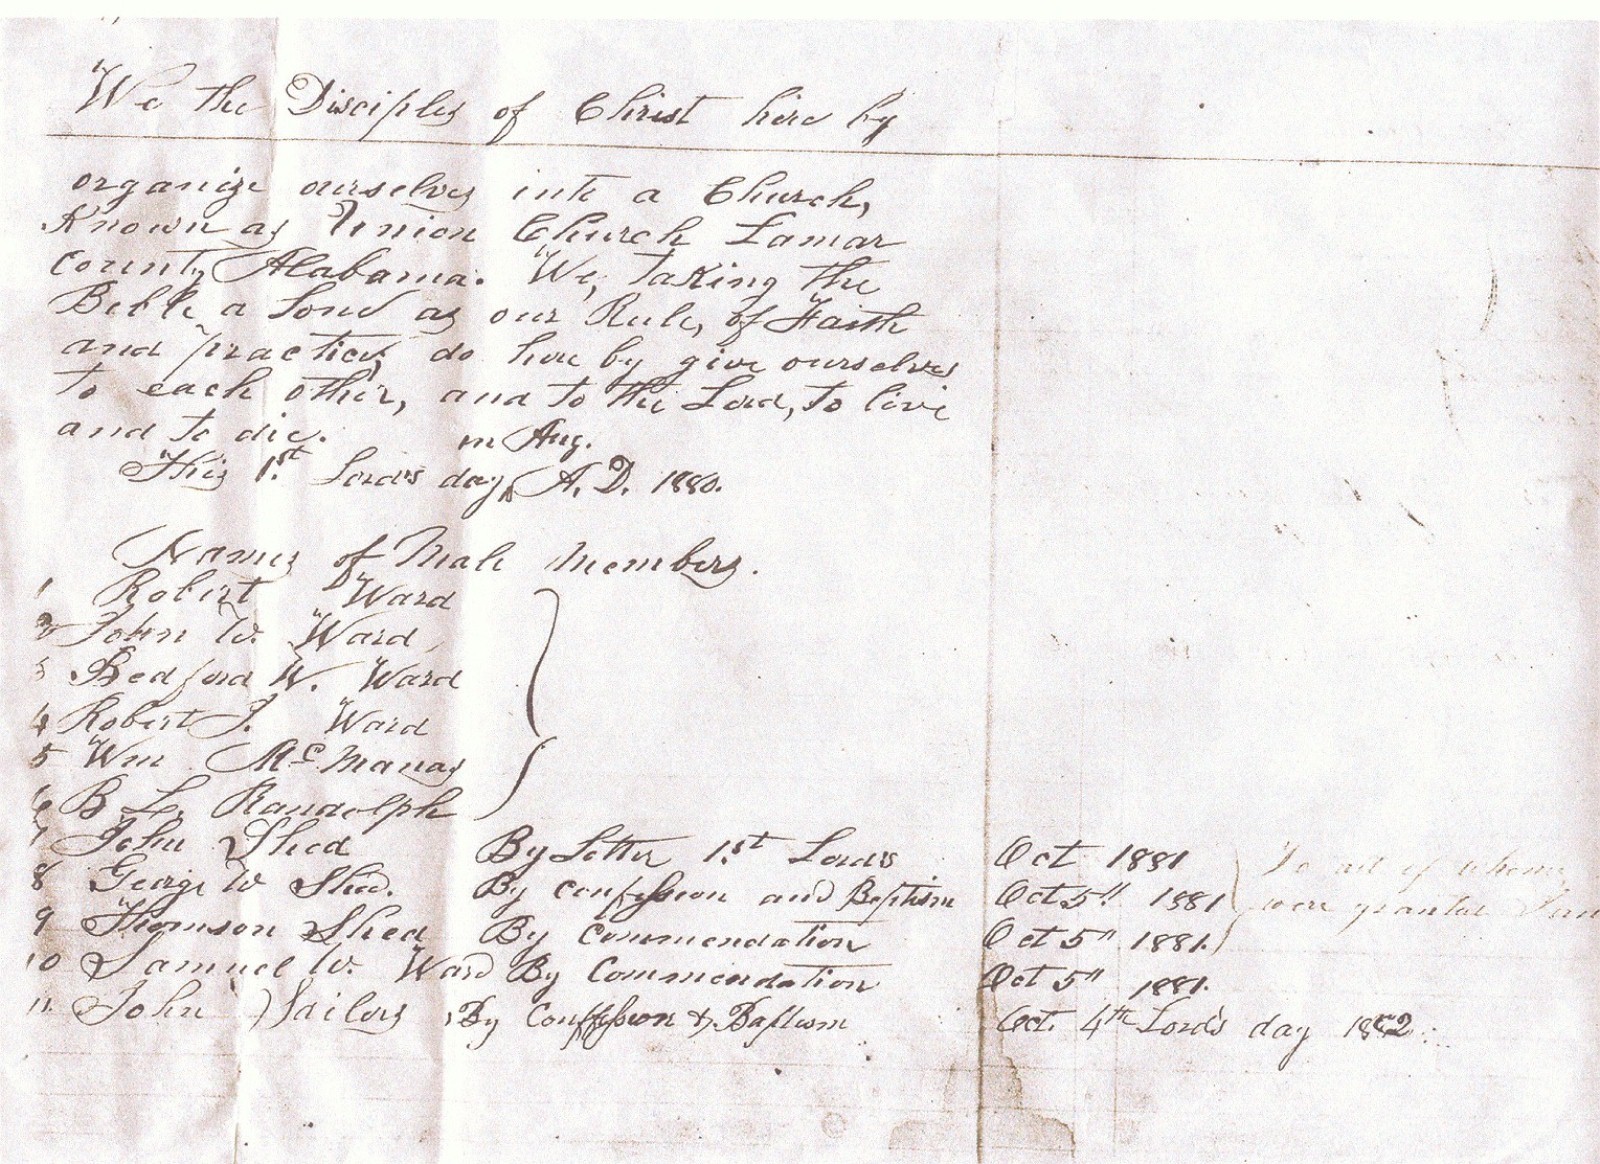 We the Disciples of Christ here by
organize ourselves into a Church,
Known as Union Church Lamar
County Alabama. We, taking the
Bible a lone as our Rule, of Faith
and practice, do here by give ourselves
to each other, and to the Lord, to live
and to die.
in Aug.
This 1st Lord's day A. D. 1880.
Names of Male Members.
1 Robert Ward
2 John W. Ward
3 Bedford W. Ward
4 Robert J. Ward
5 Wm McManas
6 B L. Randolph
7 John Shed By Letter 1st Lord's Oct 1881
8 George W Shed. By confession and Baptism Oct 5th 1881
9 Thomson Shed By Commendation Oct 5th 1881.
10 Samuel W. Ward By Commendation Oct 5th 1881.
11 John Sailors By Confession & Baptism Oct. 4th Lord's day 1882
To all of whom
were granted